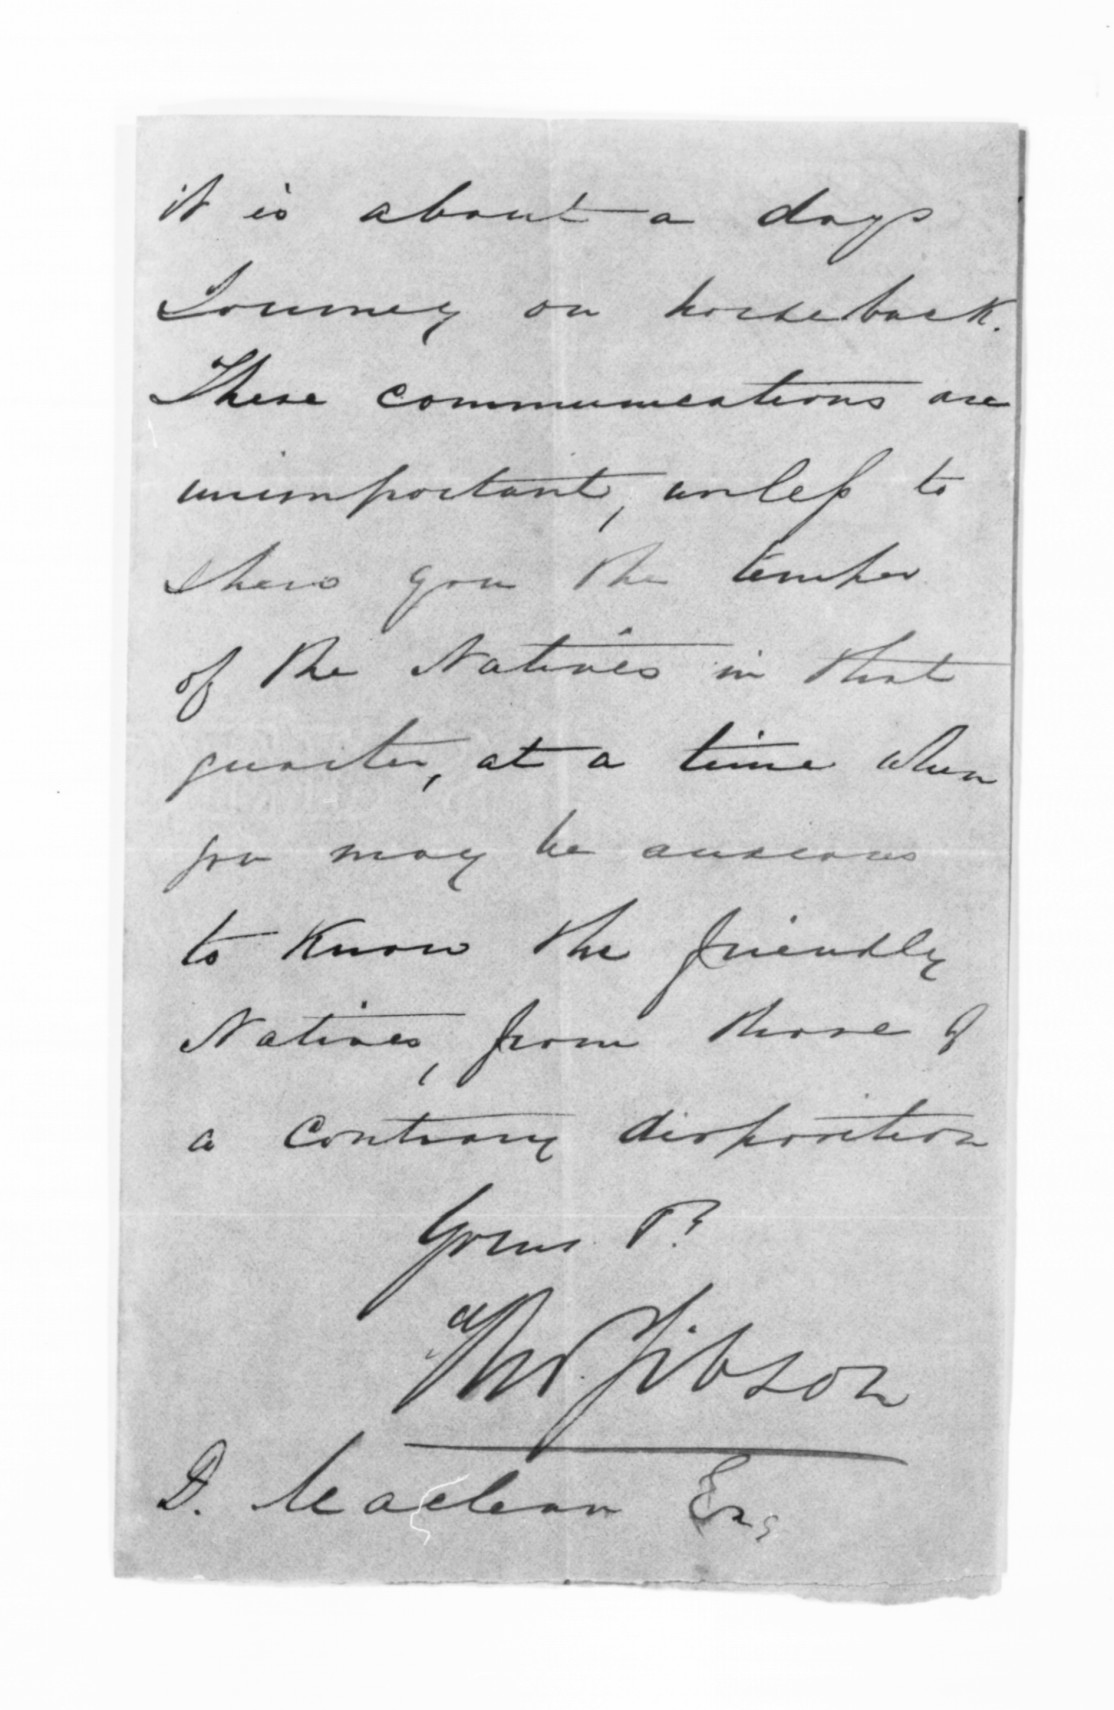 it is about a days
Journey on horseback.
These communications are
unimportant, unless to
shew you the temper
of the Natives in that
quarter, at a time when
you may be anxious
to know the friendly
Natives, from those of
a contrary disposition
Yours
Thos. Gibson
D. Maclean Esq